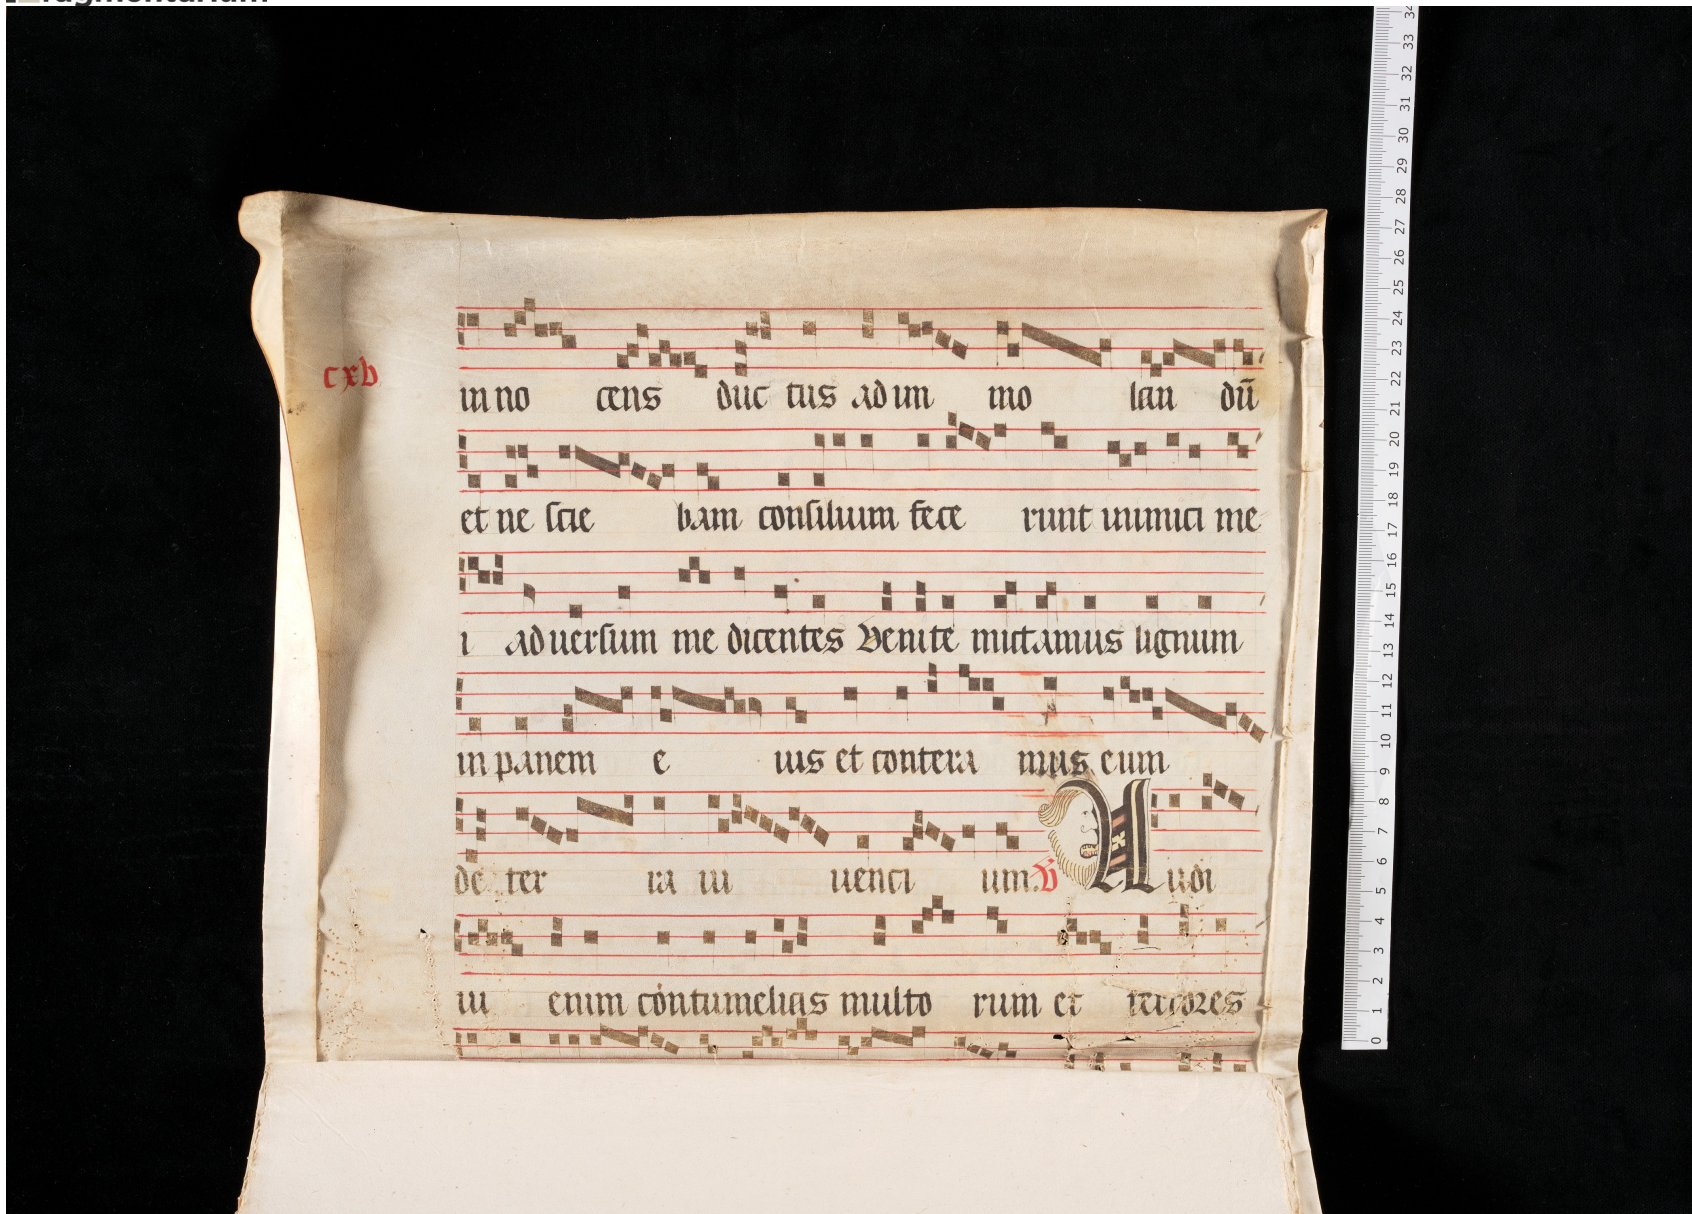 Fragmentarium
cxv
in no cens duc tus ad im mo lan dū
et ne scie bam consilium fece runt inimici me
i ad uersum me dicentes Venite mittamus lignum
in panem e ius et contera mus eum
de ter ra ui uenti um. V Audi
ui enim contumelias multo rum et terrores
0 1 2 3 4 5 6 7 8 9 10 11 12 13 14 15 16 17 18 19 20 21 22 23 24 25 26 27 28 29 30 31 32 33 34